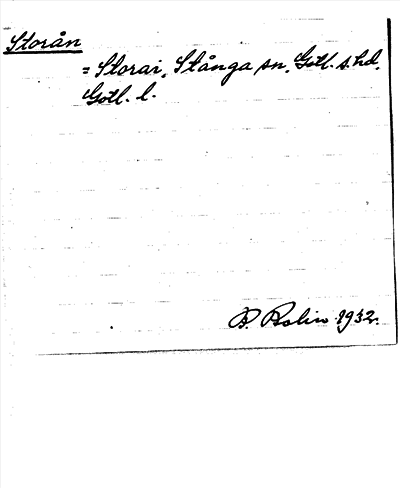 Storån
= Storai, Stånga sn, Gotl. s. hd.
Gotl. l.
B. Bolin 1932.